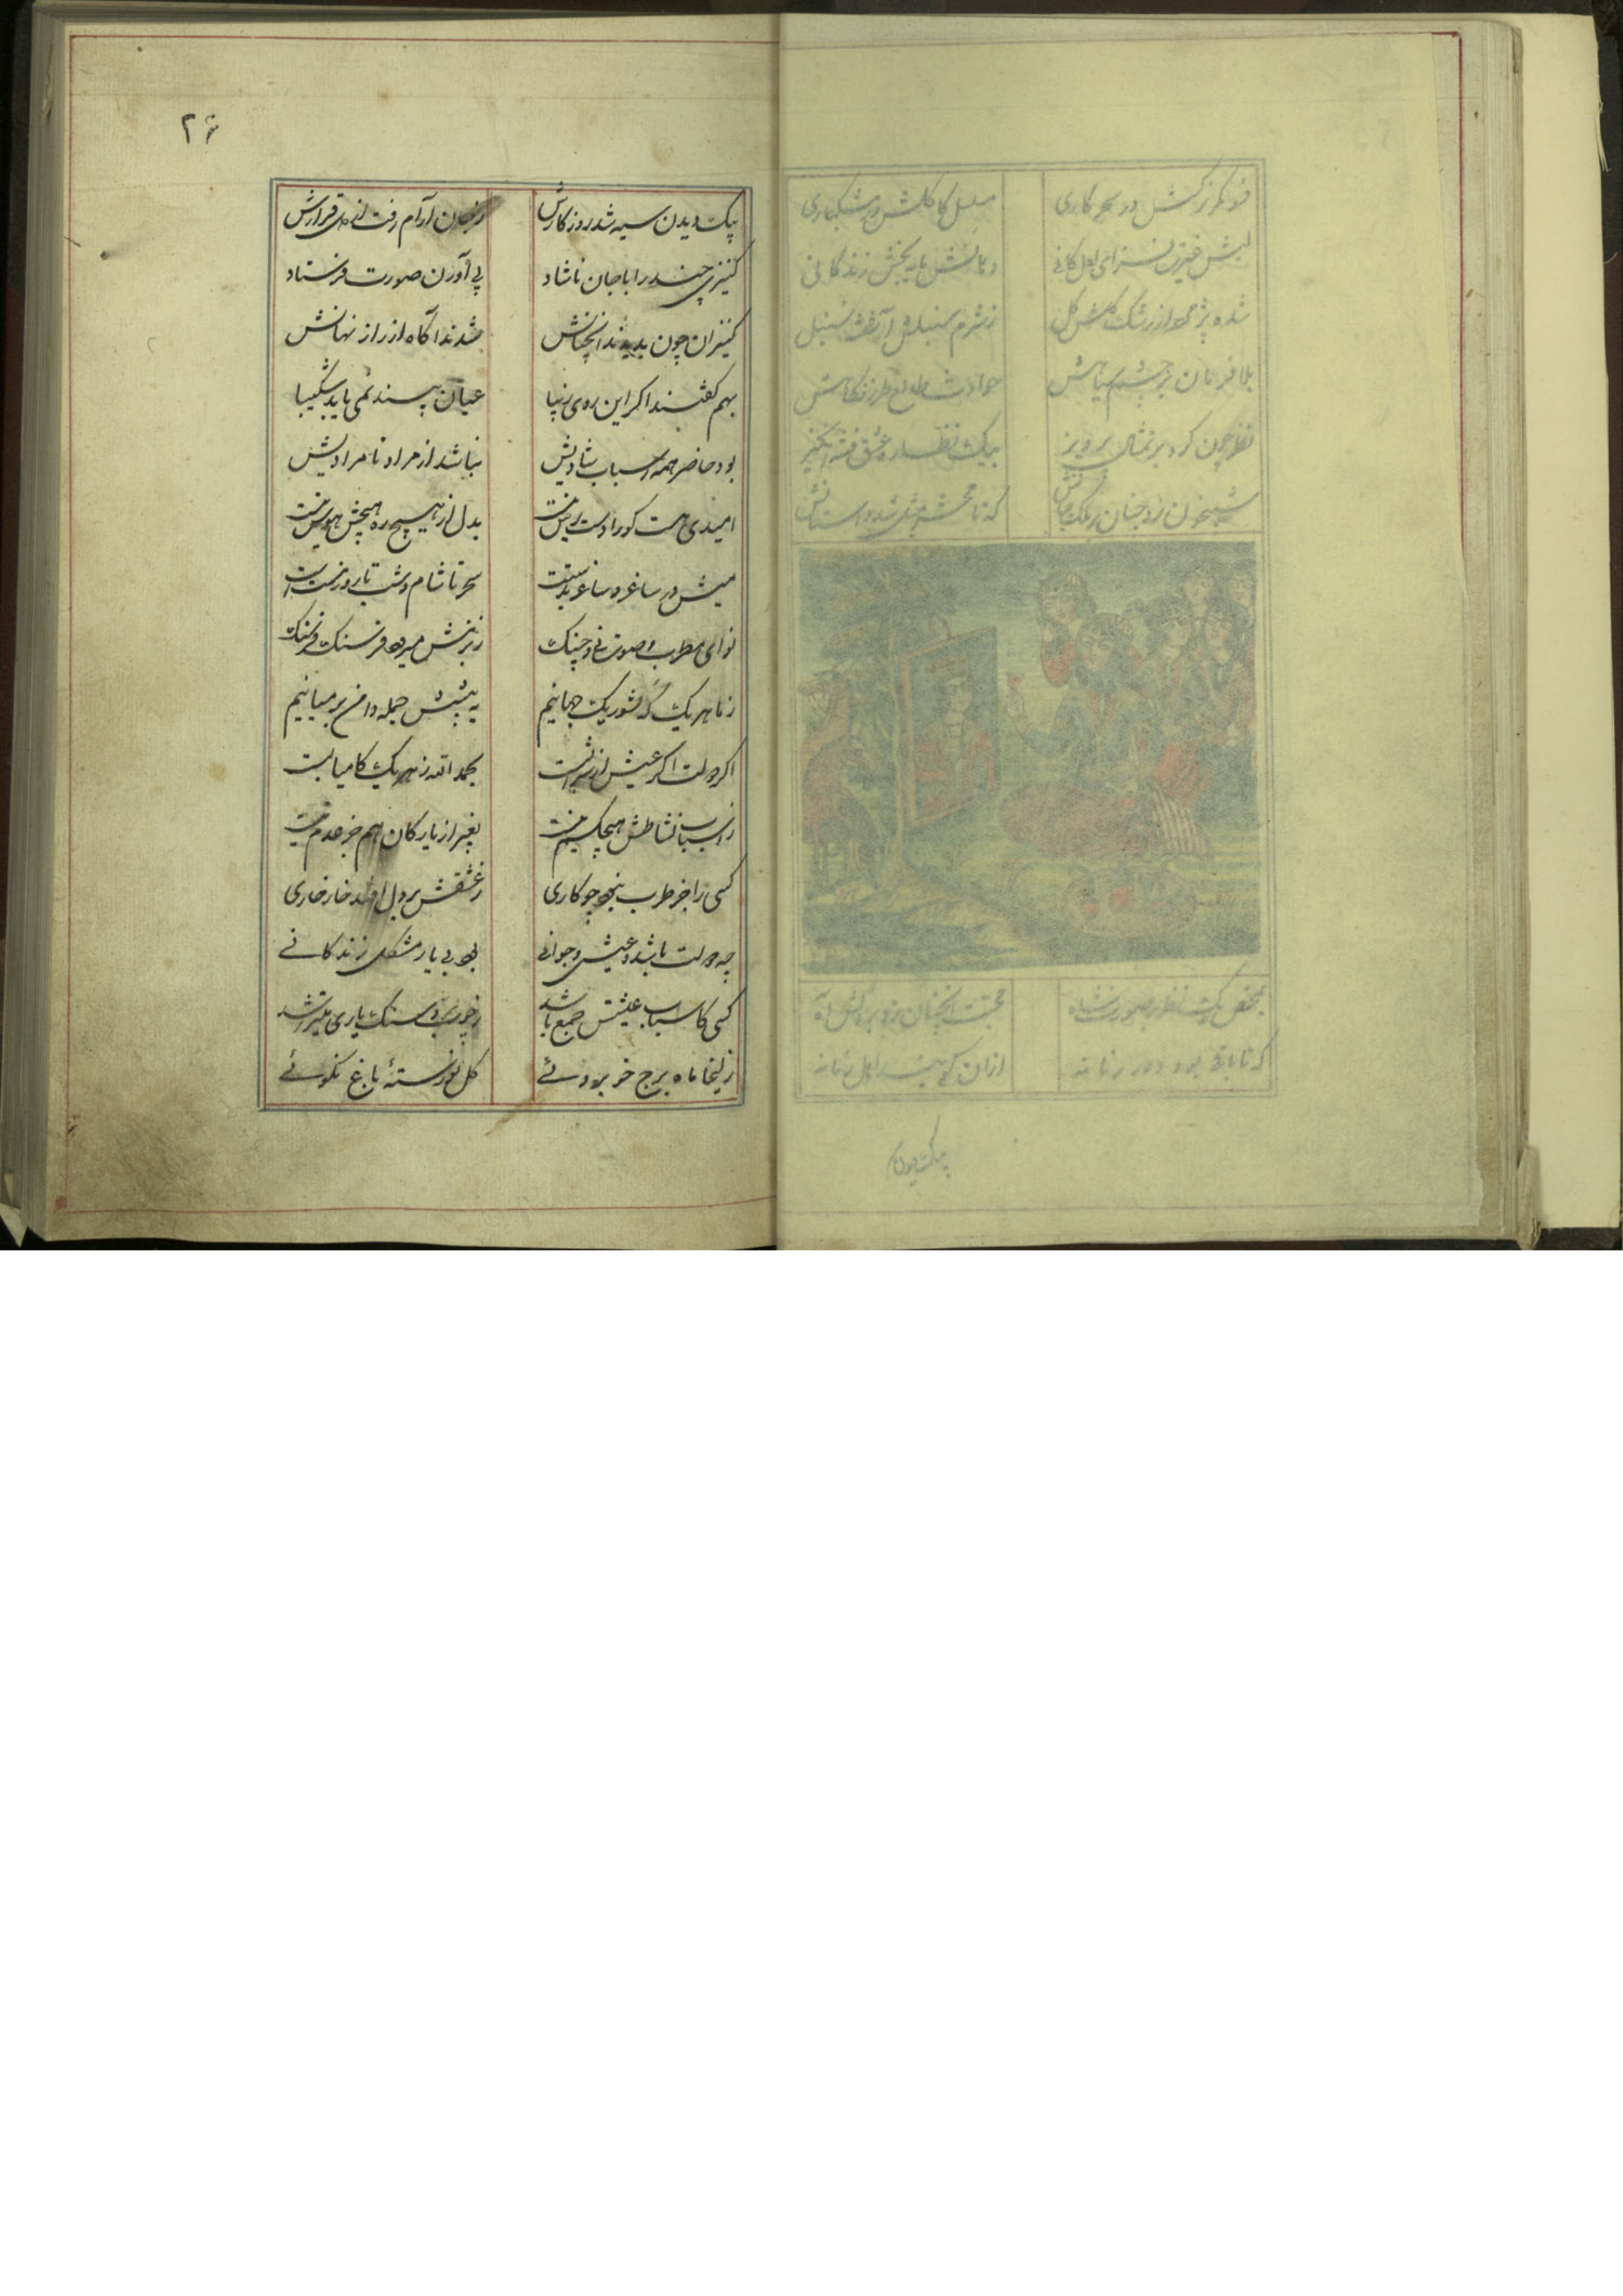 فسونگر نرگسش در سحرکاری
سنبل کاکلش در مشکباری
لبش قیمت فزای لعل کانی
دهانش مایه بخش زندگانی
شده پژمرده از رشک گلش گل
ز شرم سنبلش آشفته سنبل
بلا فرمان بر چشم سیاهش
حوادث طرز نگاهش
نظر چون کرد بر تمثال پرویز
بیک نظاره عشق فتنه انگیز
شبیخون زد چنان بر ملک جانش
که تا محشر شد داستانش
بمحض یک نظر صورت شاه
محبت آنچنان زد بر دلش راه
که تا باقی بود دور زمانه
ازان اهل زمانه
بیک دیدن
۲۶
بیک دیدن سیه شد روزکارش
ز جان آرام رفت از دل قرارش
کنیزی چند را با جان ناشاد
پی آوردن صورت فرستاد
کنیزان چون بدیدند آنچنانش
شدند آگاه از راز نهانش
بهم گفتند اکر این روی زیبا
عیان بیند نمی باید شکیبا
بود حاضر همه اسباب شادیش
نباشد از مراد نامرادیش
امیدی هست کورا دست رس نیست
بدل از هیچ ره هیچش هوس نیست
میش در ساغر و ساغر بدستست
سحر تا شام و شب تا روز مستست
نوای مطرب و صوت نی و چنک
ز بزمش میرود فرسنک فرسنک
ز ما هر یک که آشوب جهانیم
به پیشش جمله دامن بر میانیم
اکر دولت اکر عیش
بحمد الله ز هر یک کامیابست
ز اسباب نشاطش هیچ کم نیست
بغیر از یار کان هم جز عدم نیست
کسی را جز طرب نبود چو کاری
ز عشقش بر دل افتد خار خاری
چه دولت باشد و عیش و جوانی
بود بی یار مشکل زندگانی
کسی کاسباب عیشش جمع باشد
یاری
زلیخا ماه برج خوبروئی
گل نورستهٔ باغ نکوئی